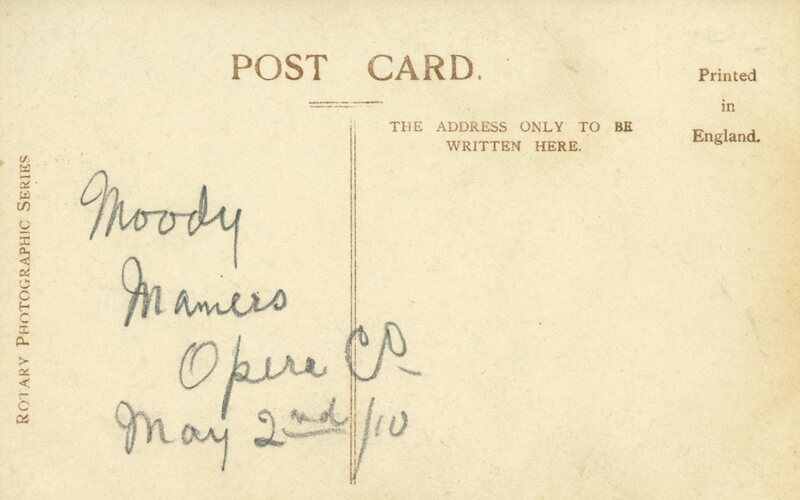 POST CARD.
Printed
in
England.
THE ADDRESS ONLY TO BE
WRITTEN HERE.
ROTARY PHOTOGRAPHIC SERIES
Moody
Manners
Opera Co
May 2nd/10